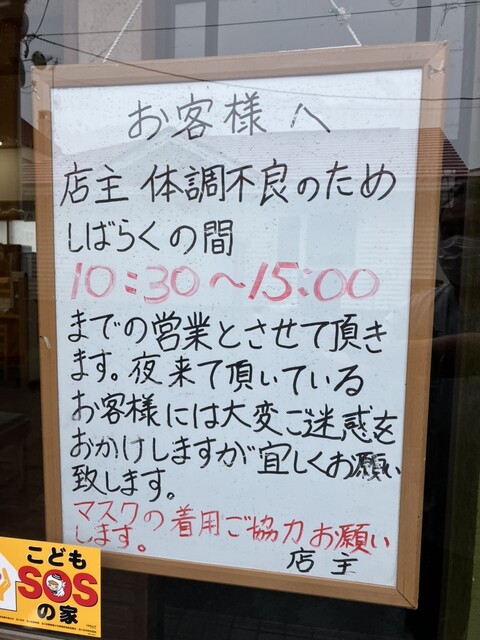 お客様へ
店主 体調不良のため
しばらくの間
10:30～15:00
までの営業とさせて頂き
ます。夜来て頂いている
お客様には大変ご迷惑を
おかけしますが宜しくお願い
致します。
マスクの着用ご協力お願い
します。
店主
こども
SOS
の家